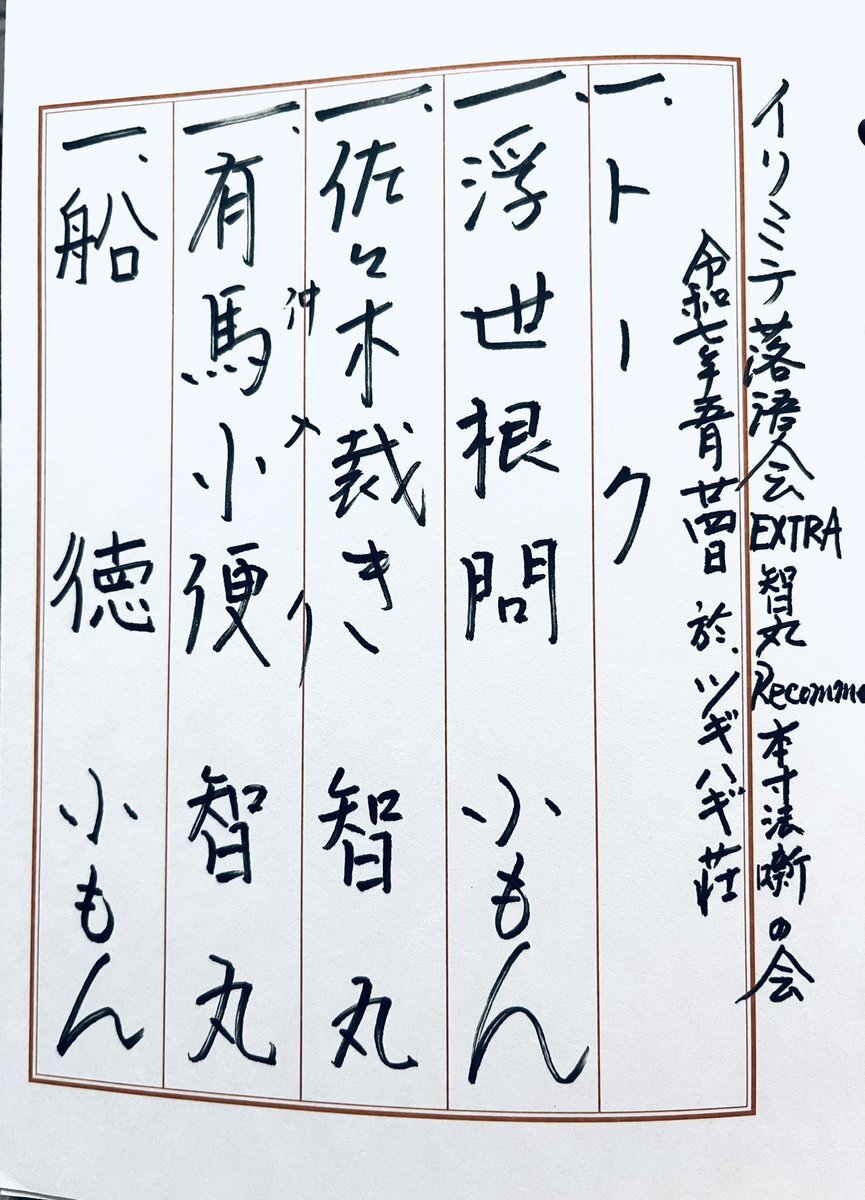 イリミテ落語会 EXTRA 智丸 Recomme 本寸法噺の会
令和七年五月廿四日 於、ツギハギ荘
一、トーク
一、浮世根問 小もん
一、佐々木裁き 智丸
仲入り
一、有馬小便 智丸
一、船徳 小もん